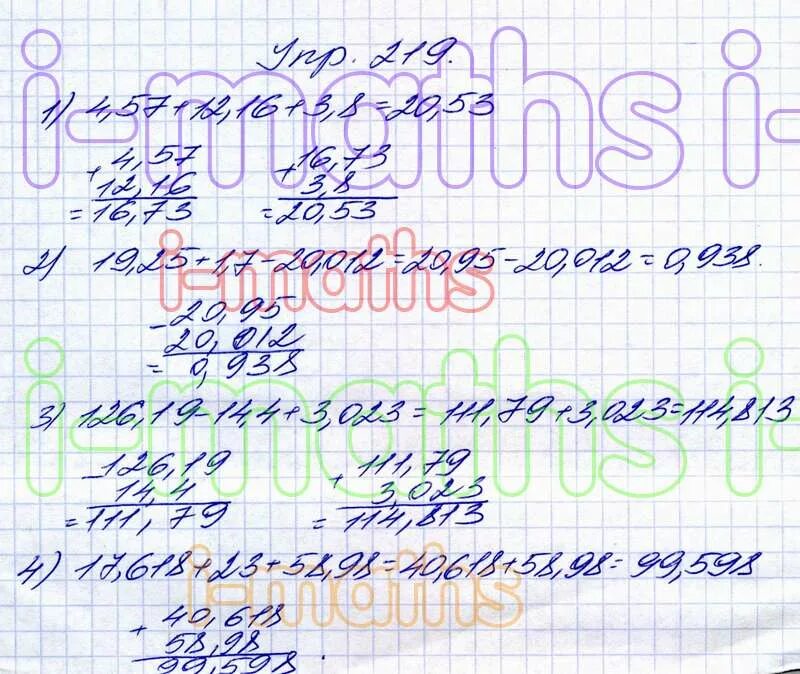 Упр. 219.
1) 4,57+12,16+3,8=20,53
+ 4,57
12,16
= 16,73
+ 16,73
3,8
= 20,53
2) 19,25+1,7-20,012=20,95-20,012=0,938.
- 20,95
20,012
= 0,938
3) 126,19-14,4+3,023=111,79+3,023=114,813
- 126,19
14,4
= 111,79
+ 111,79
3,023
= 114,813
4) 17,618+23+58,98=40,618+58,98=99,598
+ 40,618
58,98
99,598.
i-maths i-
i-maths
i-maths i-
i-maths